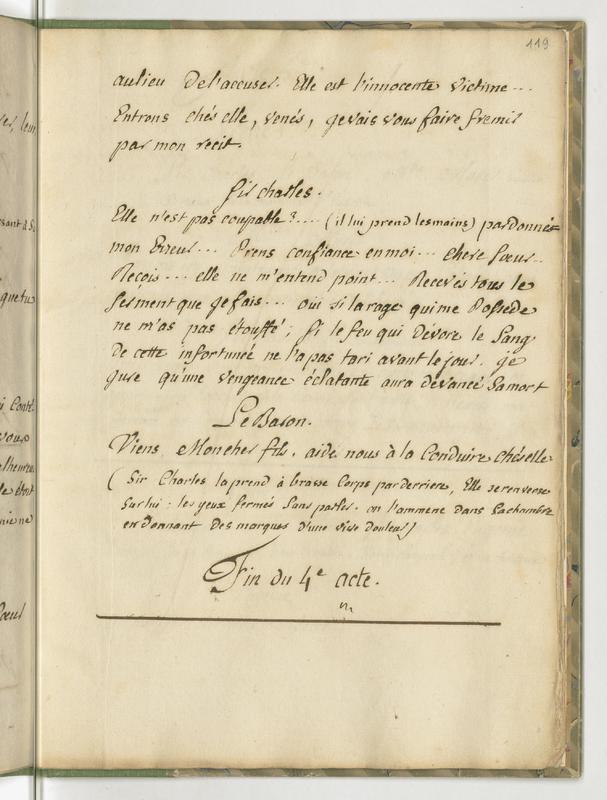 119
aulieu de l'accuser. Elle est l'innocente victime ...
Entrons chés elle, venés, je vais vous faire fremir
par mon recit.
Sir charles.
Elle n'est pas coupable ? .... (il lui prend les mains) pardonnés
mon Erreur ... Prens confiance en moi ... chere soeur ..
Reçois ... elle ne m'entend point ... Recevés tous le
serment que je fais ... oui si la rage qui me Possede
ne m'as pas étouffé ; si le feu qui devore le sang
de cette infortunée ne l'a pas tari avant le jour. je
jure qu'une vengeance éclatante aura devancé sa mort
Le Baron.
Viens Mon cher fils, aide nous à la Conduire chés elle
( Sir Charles la prend à brasse Corps par derriere, Elle se renverse
sur lui : les yeux fermés sans parler. on l'ammene dans sa chambre
en donnant des marques d'une vive douleur)
Fin du 4e acte.